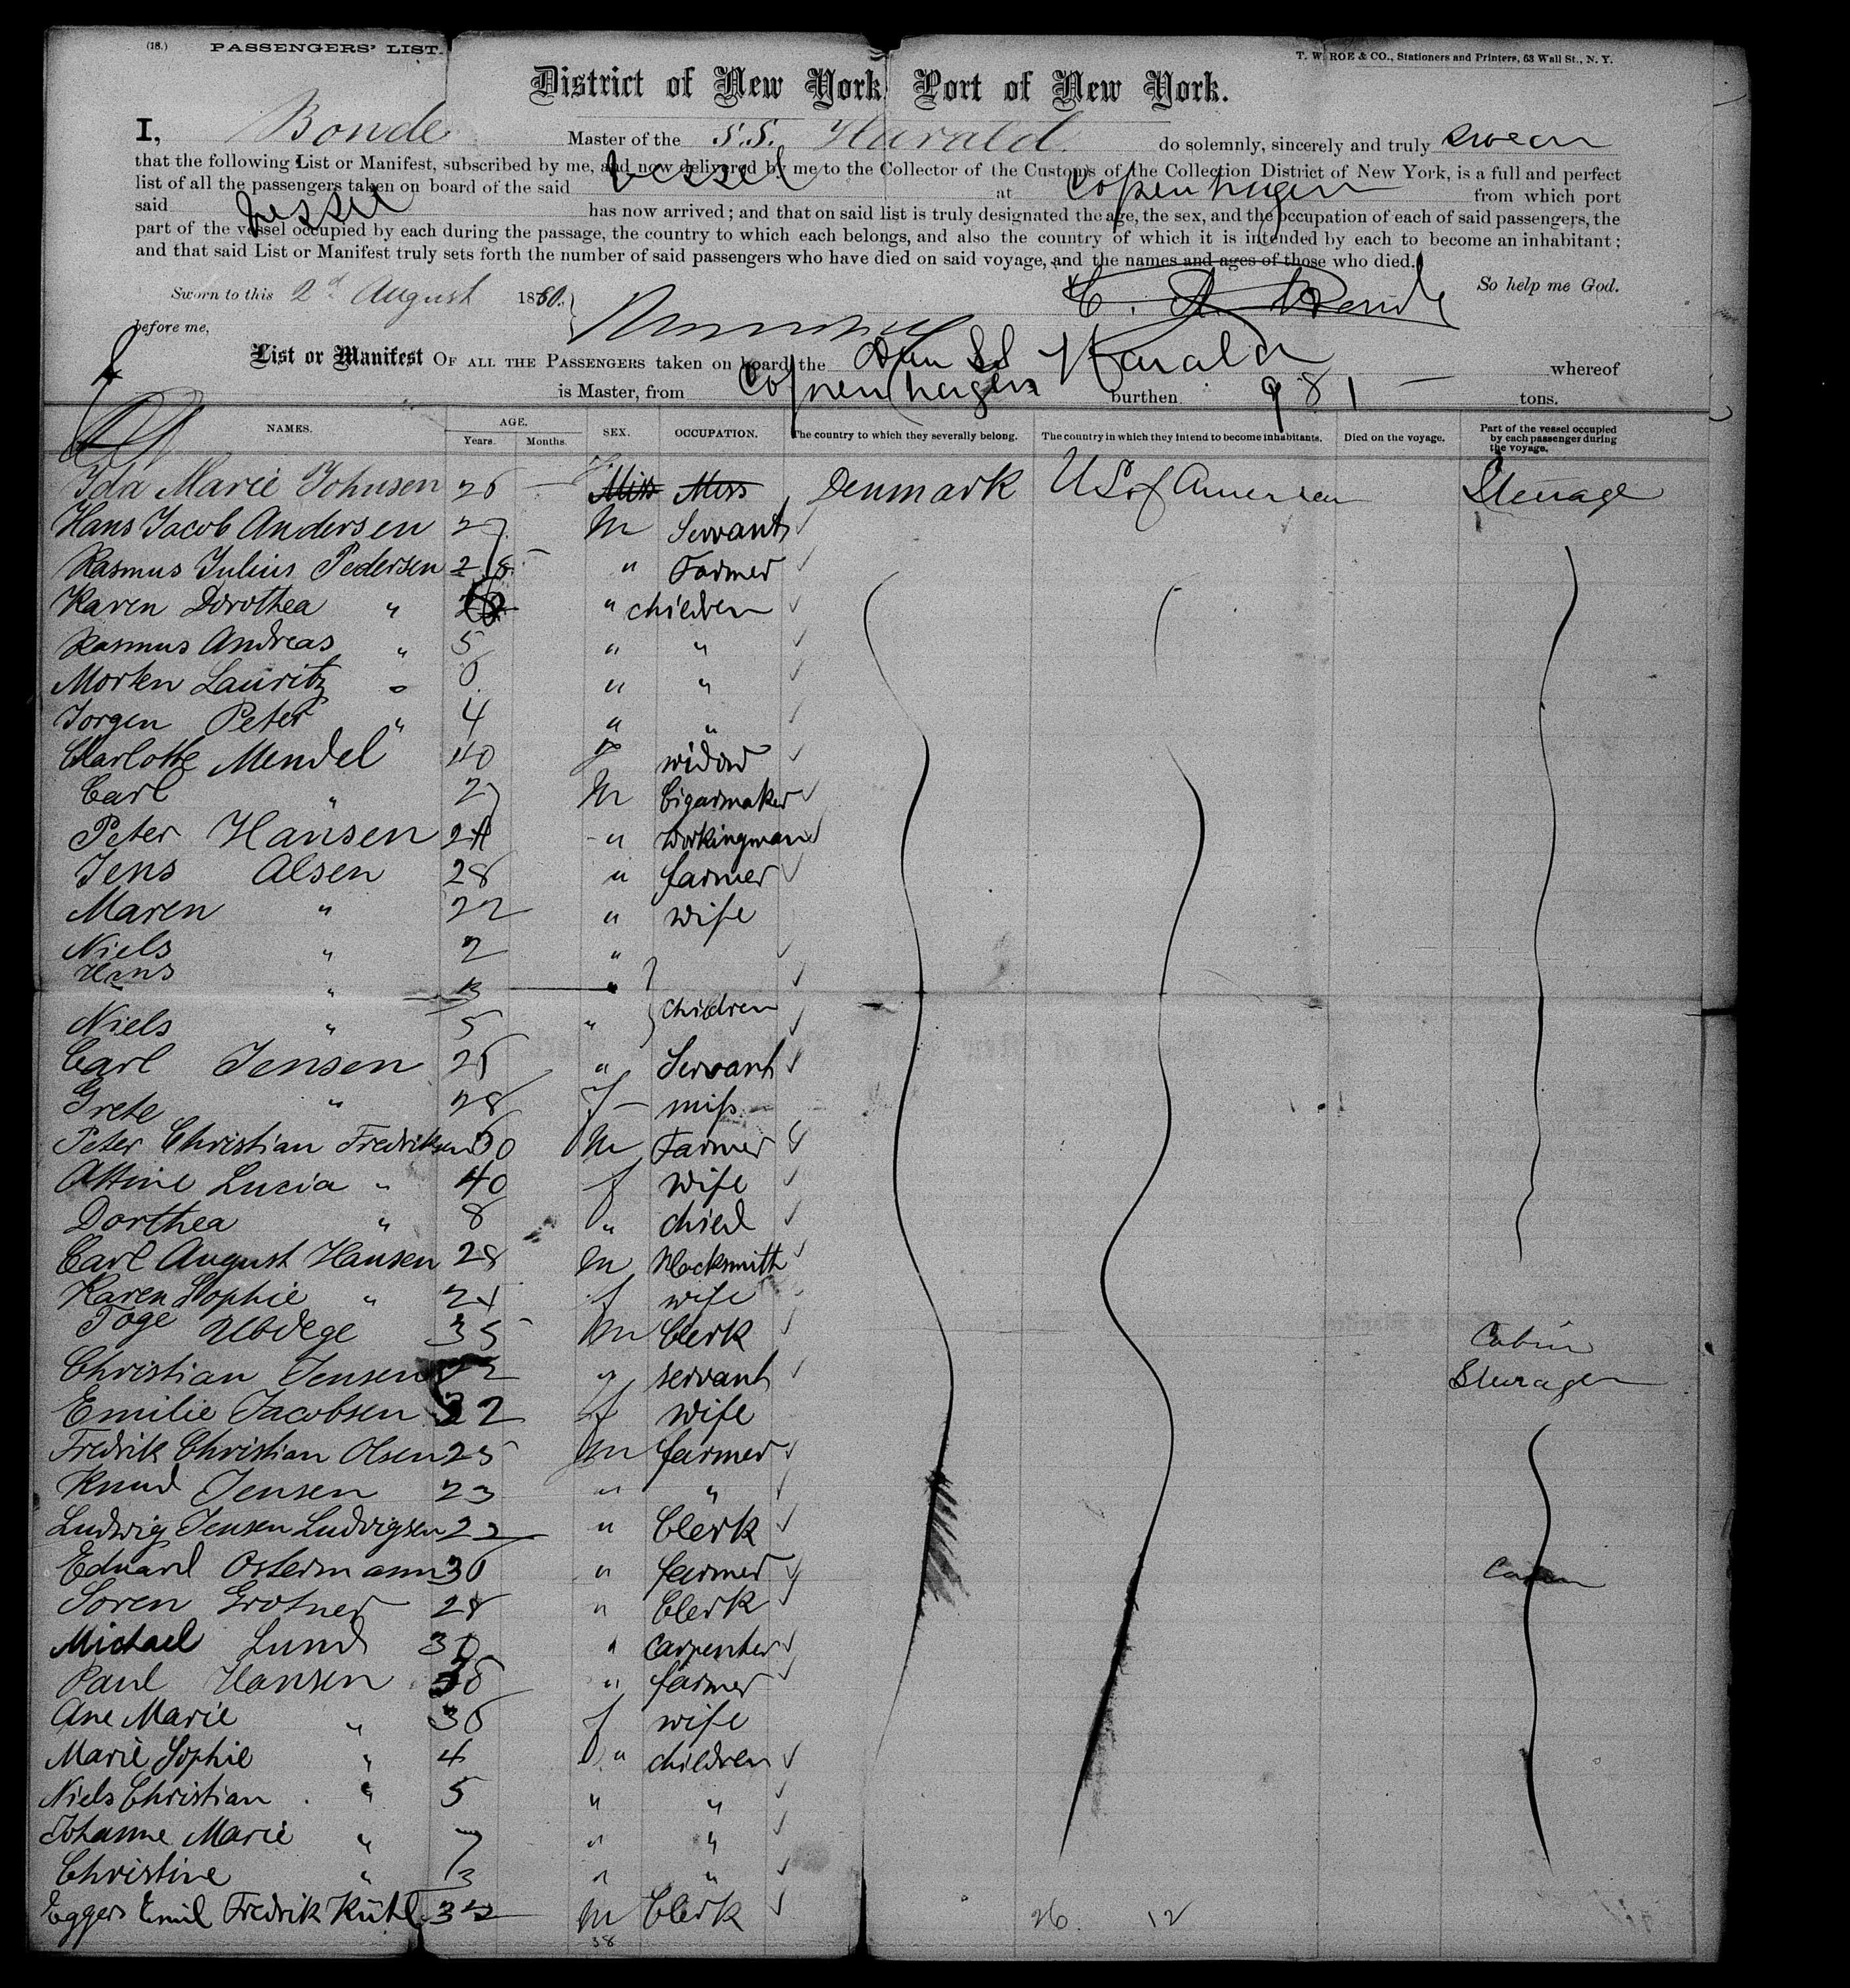 (18.) PASSENGERS' LIST.
T. W. ROE & CO., Stationers and Printers, 63 Wall St., N. Y.
District of New York Port of New York.
I, Bonde Master of the S.S. Harald do solemnly, sincerely and truly swear
that the following List or Manifest, subscribed by me, and now delivered by me to the Collector of the Customs of the Collection District of New York, is a full and perfect
list of all the passengers taken on board of the said vessel at Copenhagen from which port
said vessel has now arrived; and that on said list is truly designated the age, the sex, and the occupation of each of said passengers, the
part of the vessel occupied by each during the passage, the country to which each belongs, and also the country of which it is intended by each to become an inhabitant;
and that said List or Manifest truly sets forth the number of said passengers who have died on said voyage, and the names and ages of those who died.
So help me God.
Sworn to this 2d August 1880.
before me,
List or Manifest OF ALL THE PASSENGERS taken on board the Dan SS Harald whereof
is Master, from Copenhagen burthen 981 tons.
NAMES. AGE. Years. Months. SEX. OCCUPATION. The country to which they severally belong. The country in which they intend to become inhabitants. Died on the voyage. Part of the vessel occupied by each passenger during the voyage.
Ida Marie Johnsen 26 Miss Miss Denmark US of America Steerage
Hans Jacob Andersen 27 m Servant
Rasmus Julius Pedersen " Farmer
Karen Dorothea " " children
Rasmus Andreas " 5 " "
Morten Lauritz " " "
Jorgen Peter " 4 " "
Charlotte Mendel 40 f widow
Carl " 27 m Cigarmaker
Peter Hansen 24 " workingman
Jens Olsen 28 " farmer
Maren " 22 " wife
Niels " 2 "
Hans " 3 "
children
Niels " 5 "
Carl Jensen " Servant
Grete " 28 f miss
Peter Christian Fredriksen 50 m Farmer
Attine Lucia " 40 f wife
Dorthea " 8 " child
Carl August Hansen 28 m Blocksmith
Karen Sophie " 24 f wife
Toge 35 m Clerk Cabin
Christian Jensen 22 " servant Steerage
Emilie Jacobsen 32 f wife
Fredrik Christian Olsen 25 m farmer
Knud Jensen 23 " "
Ludwig Jensen Ludvigsen 22 " Clerk
Eduard Ostermann 36 " farmer Cabin
Soren Grotner 28 " Clerk
Michael Lund 30 " Carpenter
Paul Hansen 38 " farmer
Ane Marie " 36 f wife
Marie Sophie " 4 " children
Niels Christian " 5 " "
Johanne Marie " 7 " "
Christine " 3 " "
Eggers Emil Fredrik Kühl 32 m Clerk
38
26 12